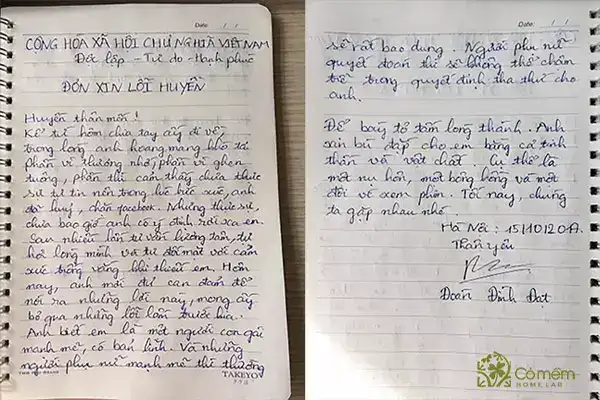 Date: / /
CỘNG HÒA XÃ HỘI CHỦ NGHĨA VIỆT NAM
Độc lập - Tự do - Hạnh phúc
ĐƠN XIN LỖI HUYỀN
Huyền thân mến!
Kể từ hôm chia tay ấy đi về
trong lòng anh hoang mang khó tả
phần vì thương nhớ, phần vì ghen
tuông, phần thì cảm thấy chưa thực
sự tự tin nên trong lúc bức xúc, anh
đã huỷ, chặn facebook. Nhưng thực sự,
chưa bao giờ anh có ý định rời xa em.
Sau nhiều lần tự vấn lương tâm, tự
hỏi lòng mình và tự đối mặt với cảm
xúc trống vắng khi thiếu em. Hôm
nay, anh mới đủ can đảm để
nói ra những lời này, mong ấy
bỏ qua những lỗi lầm trước kia.
Anh biết em là một người con gái
mạnh mẽ, có bản lĩnh. Và những
người phụ nữ mạnh mẽ thì thường
TAKEYO
Date: / /
sẽ rất bao dung. Người phụ nữ
quyết đoán thì sẽ không thể chậm
trễ trong quyết định tha thứ cho
anh.
Để bày tỏ tấm lòng thành. Anh
xin bù đắp cho em bằng cả tinh
thần và vật chất. Cụ thể là
một nụ hôn, một bông hồng và một
đôi vé xem phim. Tối nay, chúng
ta gặp nhau nhé.
Hà Nội:
Thân yêu
Đoàn Đình Đạt
Cỏ mềm
HOME LAB